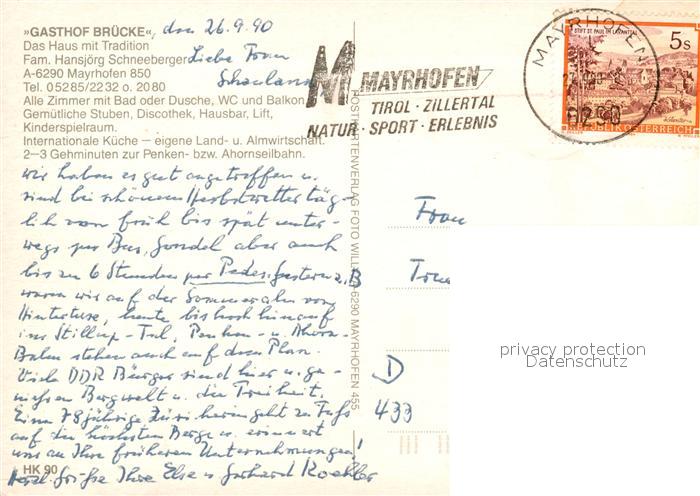 »GASTHOF BRÜCKE«, den 26.9.90
Das Haus mit Tradition
Fam. Hansjörg Schneeberger
A-6290 Mayrhofen 850
Tel. 05285/2232 o. 2080
Alle Zimmer mit Bad oder Dusche, WC und Balkon,
Gemütliche Stuben, Discothek, Hausbar, Lift,
Kinderspielraum.
Internationale Küche – eigene Land- u. Almwirtschaft.
2–3 Gehminuten zur Penken- bzw. Ahornseilbahn.
Liebe Frau
wir haben es gut angetroffen u.
sind bei schönem Herbstwetter täg-
lich von früh bis spät unter-
wegs per Bus, Gondel aber auch
bis zu 6 Stunden per Pedes. Gestern z. B
waren wir auf der Sommeralm von
Hintertux, heute bis hoch hinauf
ins Stillup-Tal, Penken- u. Ahorn-
Bahn stehen auch auf dem Plan.
Viele DDR Bürger sind hier u. ge-
niessen Bergwelt u. die Freiheit.
Eine 78jährige geht zu Fuß
auf die höchsten Berge u. erinnert
uns an Ihre früheren Unternehmungen!
Herzl. Grüße Ihre Else u Gerhard Koehler
HK 90
POSTKARTENVERLAG FOTO 6290 MAYRHOFEN 455
M MAYRHOFEN
TIROL · ZILLERTAL
NATUR · SPORT · ERLEBNIS
MAYRHOFEN
6290
STIFT ST. PAUL IM LAVANTTAL
5s
Kärnten
REPUBLIK ÖSTERREICH
Frau
D
433
privacy protection
Datenschutz